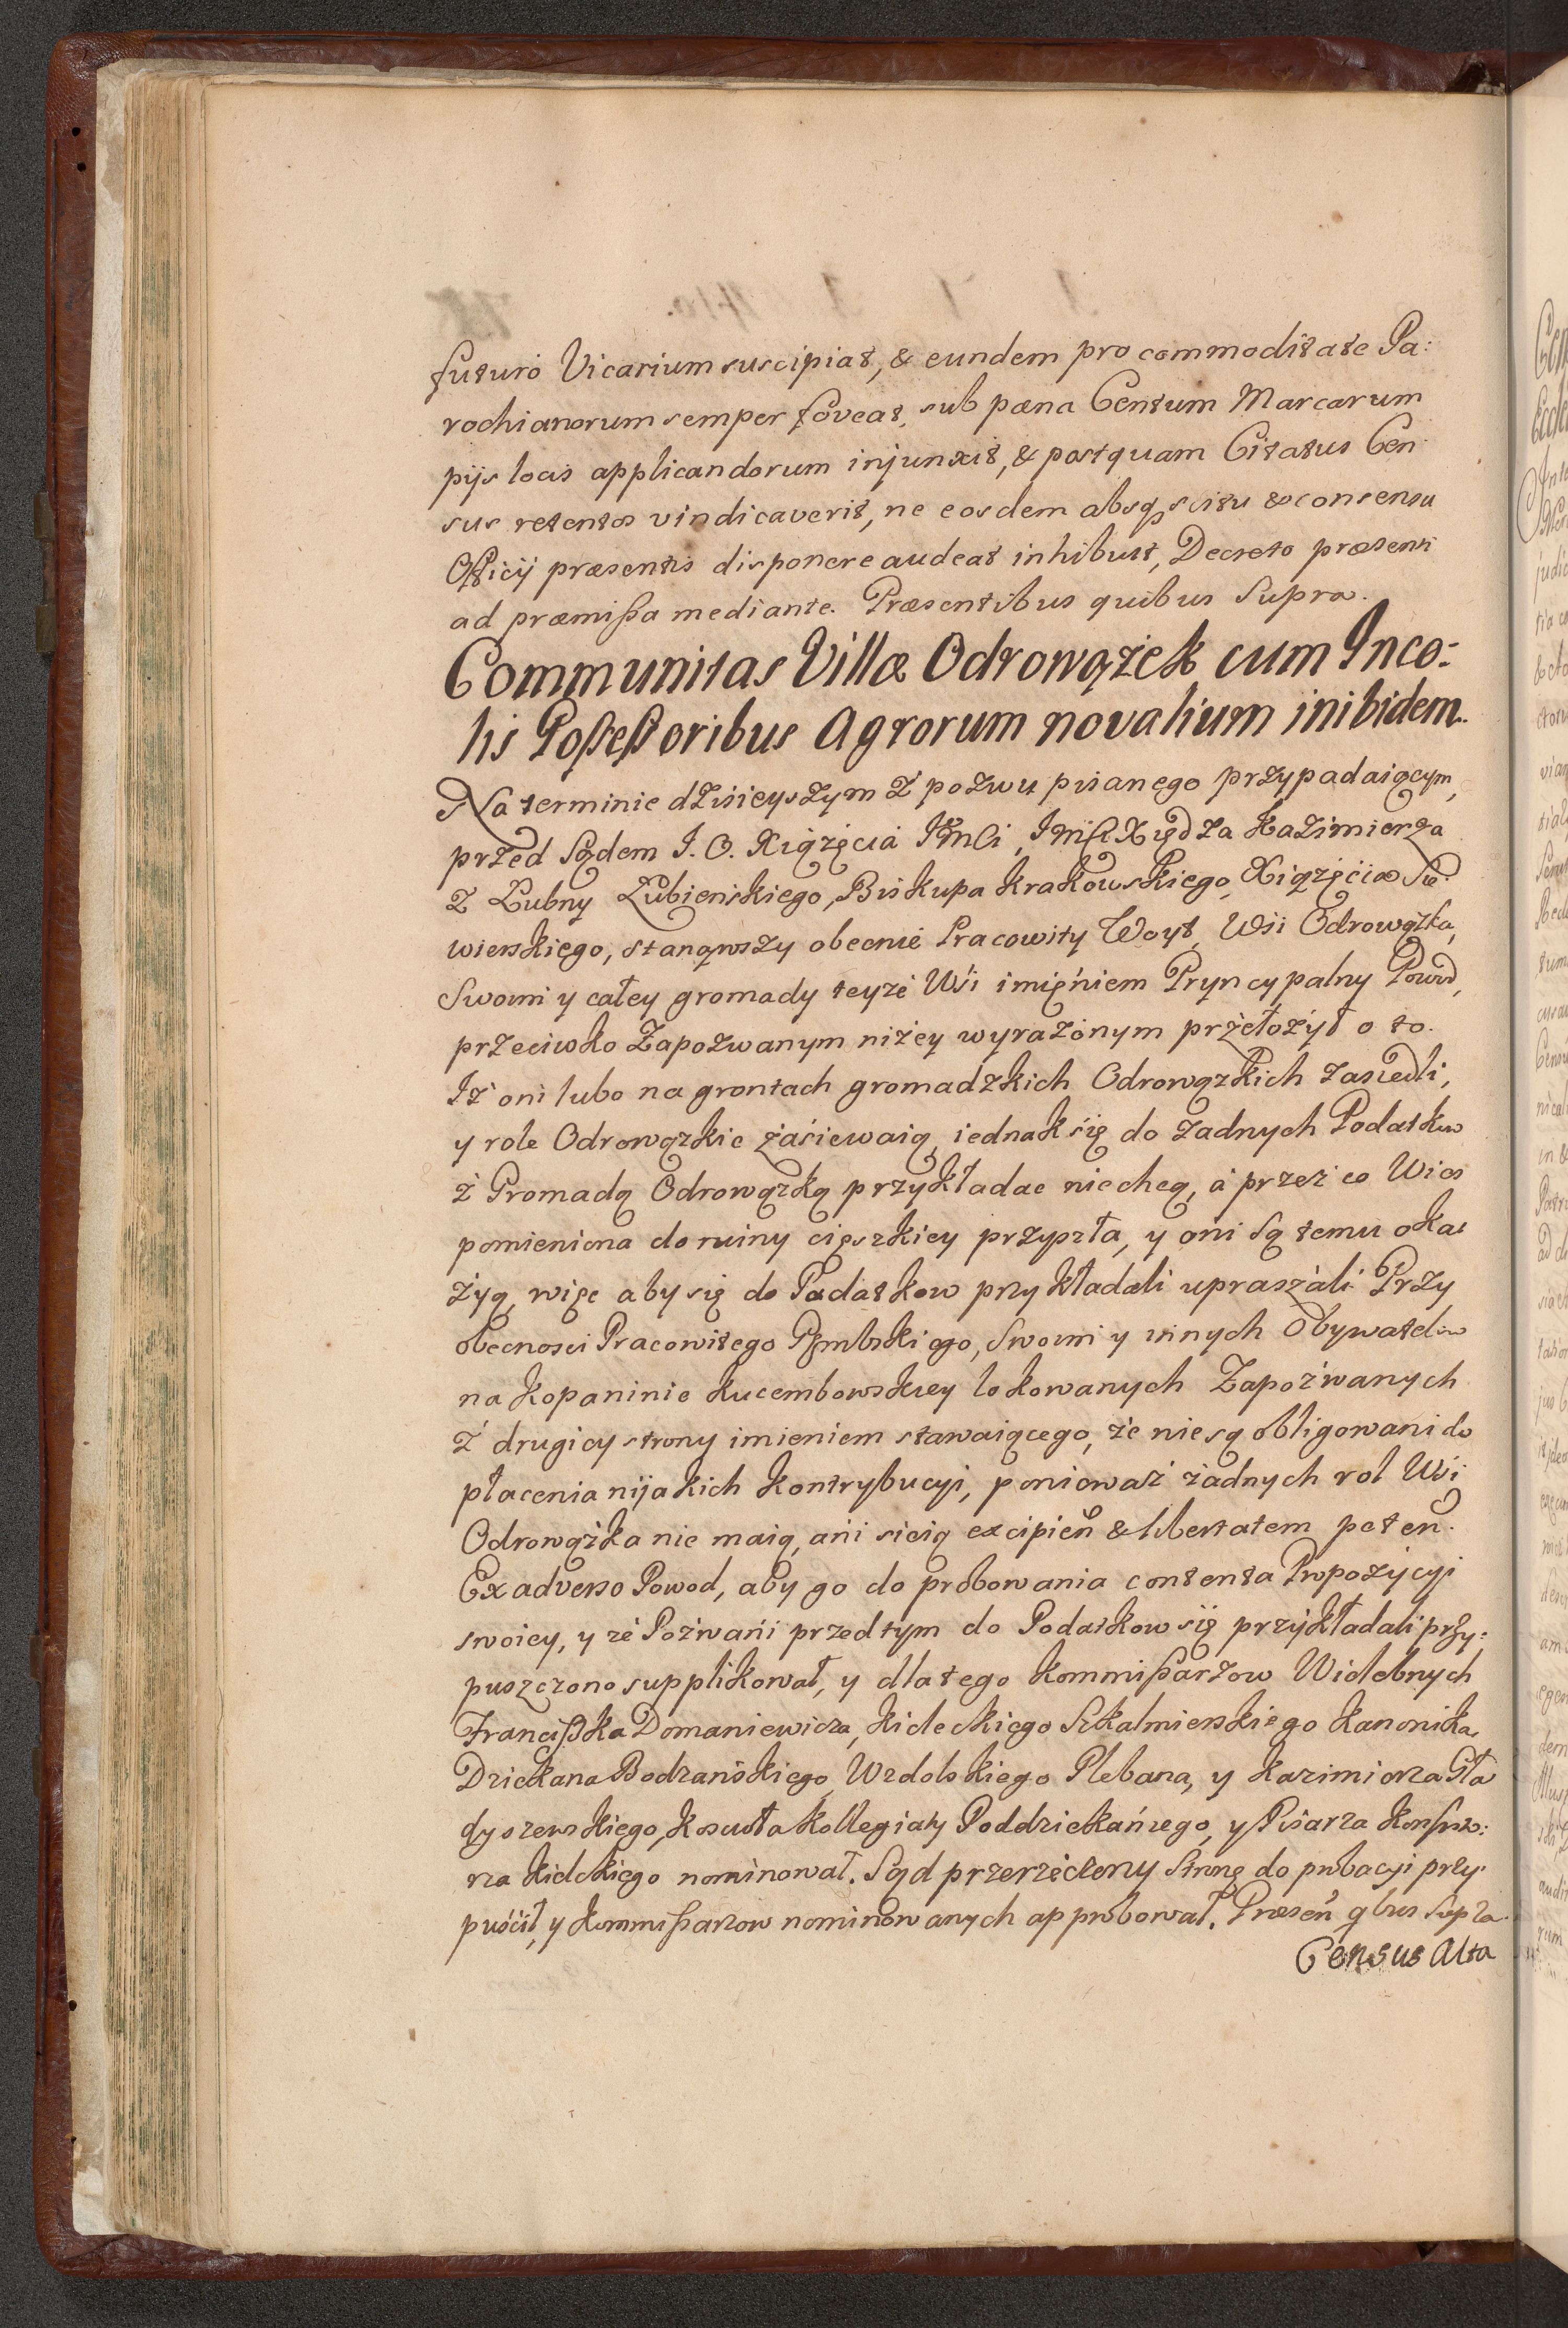 futuro Vicarium suscipiat, & eundem pro commoditate Pa:
rochianorum semper foveat, sub pœna Centum Marcarum
pijs locis applicandorum injunxit, & postquam Citatus Cen:
sus retentos vindicaverit, ne eosdem absq, scitu & consensu
Officij præsentis disponere audeat inhibuit, Decreto præsenti
ad præmißa mediante. Præsentibus quibus Supra.
Communitas Villæ Odrowążek cum Inco:
lis Poßeßoribus Agrorum novalium inibidem.
Na terminie dzisieyszym z pozwu pisanego przypadaiącym,
przed Sądem J. O. Xiążęcia Jmci, Jmći Xiędza Kazimierza
z Łubny Łubieńskiego, Biskupa Krakowskiego, Xiążęcia Sie:
wierskiego, stanąwszy obecnie Pracowity Woyt, Wsi Odrowążka,
Swoim y całey gromady teyże Wśi imięniem Pryncypalny Powod,
przeciwko Zapozwanym niżey wyrażonym przełożył o to.
Iż oni lubo na grontach gromadzkich Odrowązkich zasiedli,
y role Odrowązkie zaśiewaią, iednak się do żadnych Podatkow
z Gromadą Odrowązką przykładac niechcą, á przez co Wies
pomieniona do ruiny cięszkiey przyszła, y oni są temu oka:
żyą, więc aby się do Podatkow przykładali upraszáli. Przy
obecnosci Pracowitego Swoim y innych Obywatelow
na Kopaninie Kucembowskiey lokowanych Zapozwanych
z drugiey strony imieniem stawaiącego, że nie są obligowani do
płacenia nijakich kontrybucyi, ponieważ żadnych rol Wśi
Odrowążka nie maią, ańi sieią excipień & libertatem peten.
Ex adverso Powod, aby go do probowania contenta Propozycyi
swoiey, y że Pozwańi przedtym do Podatkow się przykładali przy:
puszczono supplikował, y dla tego Kommißarzow Wielebnych
Franciszka Domaniewicza, Kieleckiego Szkalmierskiego Kanonika,
Dziekana Bodzańskiego Wzdolskiego Plebana, y Kazimierza Gła
dyszewskiego, Koscioła Kollegiaty Poddziekańiego, y Pisarza Konsysto:
rza Kielckiego nominował. Sąd przerzeczony Stronę do probacyi przy:
puśćił, y Kommißarzow nominowanych approbował. Præsen qbus Supra.
Census Alta